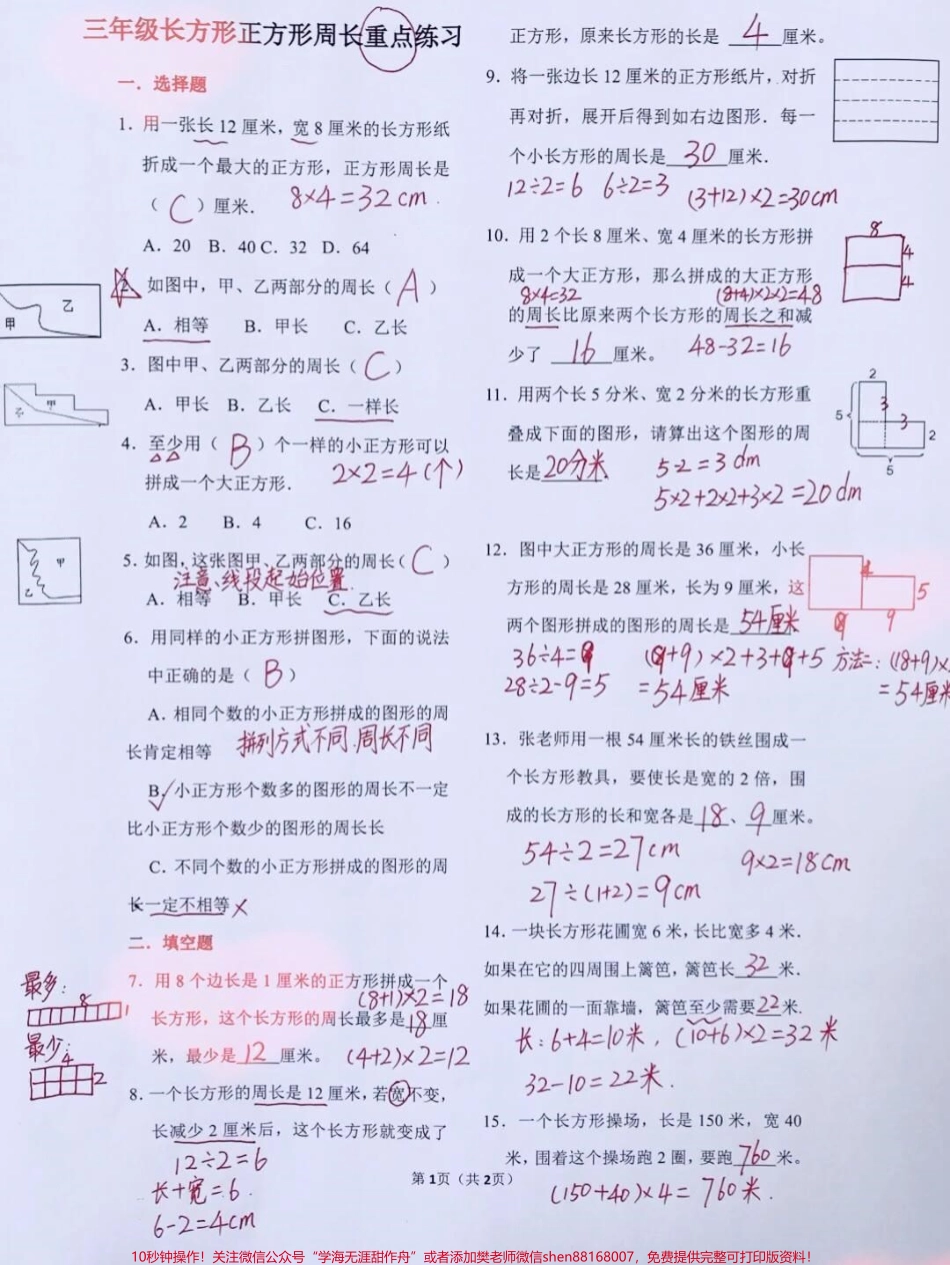 三年级长方形正方形周长重点练习
一．选择题
1．用一张长 12 厘米，宽 8 厘米的长方形纸
折成一个最大的正方形，正方形周长是
（ C ）厘米． 8×4=32cm
A．20 B．40 C．32 D．64
2．如图中，甲、乙两部分的周长（ A ）
甲 乙
A．相等 B．甲长 C．乙长
3．图中甲、乙两部分的周长（ C ）
乙 甲
A．甲长 B．乙长 C．一样长
4．至少用（ B ）个一样的小正方形可以
拼成一个大正方形． 2×2=4(个)
A．2 B．4 C．16
5．如图，这张图甲、乙两部分的周长（ C ）
注意、线段起始位置
甲 乙
A．相等 B．甲长 C．乙长
6．用同样的小正方形拼图形，下面的说法
中正确的是（ B ）
A．相同个数的小正方形拼成的图形的周
长肯定相等 拼列方式不同.周长不同
B．小正方形个数多的图形的周长不一定
比小正方形个数少的图形的周长长
C．不同个数的小正方形拼成的图形的周
长一定不相等×
二．填空题
7．用 8 个边长是 1 厘米的正方形拼成一个
(8+1)×2=18
最多：
8 1
长方形，这个长方形的周长最多是 18 厘
最少：
4 2
米，最少是 12 厘米。 (4+2)×2=12
8．一个长方形的周长是 12 厘米，若宽不变，
长减少 2 厘米后，这个长方形就变成了
12÷2=6
长+宽=6.
6-2=4cm
正方形，原来长方形的长是 4 厘米。
9．将一张边长 12 厘米的正方形纸片，对折
再对折，展开后得到如右边图形．每一
个小长方形的周长是 30 厘米．
12÷2=6 6÷2=3 (3+12)×2=30cm
10．用 2 个长 8 厘米、宽 4 厘米的长方形拼
8 4 4
成一个大正方形，那么拼成的大正方形
8×4=32 (8+4)×2×2=48
的周长比原来两个长方形的周长之和减
少了 16 厘米。 48-32=16
11．用两个长 5 分米、宽 2 分米的长方形重
2 5 3 3 2 5
叠成下面的图形，请算出这个图形的周
长是 20分米．
5-2=3dm
5×2+2×2+3×2=20dm
12．图中大正方形的周长是 36 厘米，小长
方形的周长是 28 厘米，长为 9 厘米，这
4 5 9 9
两个图形拼成的图形的周长是 54厘米
36÷4=9
28÷2-9=5
=54厘米
方法二：(18+9)×
=54厘米
13．张老师用一根 54 厘米长的铁丝围成一
个长方形教具，要使长是宽的 2 倍，围
成的长方形的长和宽各是 18 、 9 厘米。
54÷2=27cm 9×2=18cm
27÷(1+2)=9cm
14．一块长方形花圃宽 6 米，长比宽多 4 米．
如果在它的四周围上篱笆，篱笆长 32 米．
如果花圃的一面靠墙，篱笆至少需要 22 米.
长：6+4=10米，(10+6)×2=32米
32-10=22米.
15．一个长方形操场，长是 150 米，宽 40
米，围着这个操场跑 2 圈，要跑 760 米。
(150+40)×4=760米.
第 1页（共 2页）
10秒钟操作！关注微信公众号“学海无涯甜作舟”或者添加樊老师微信shen88168007，免费提供完整可打印版资料！